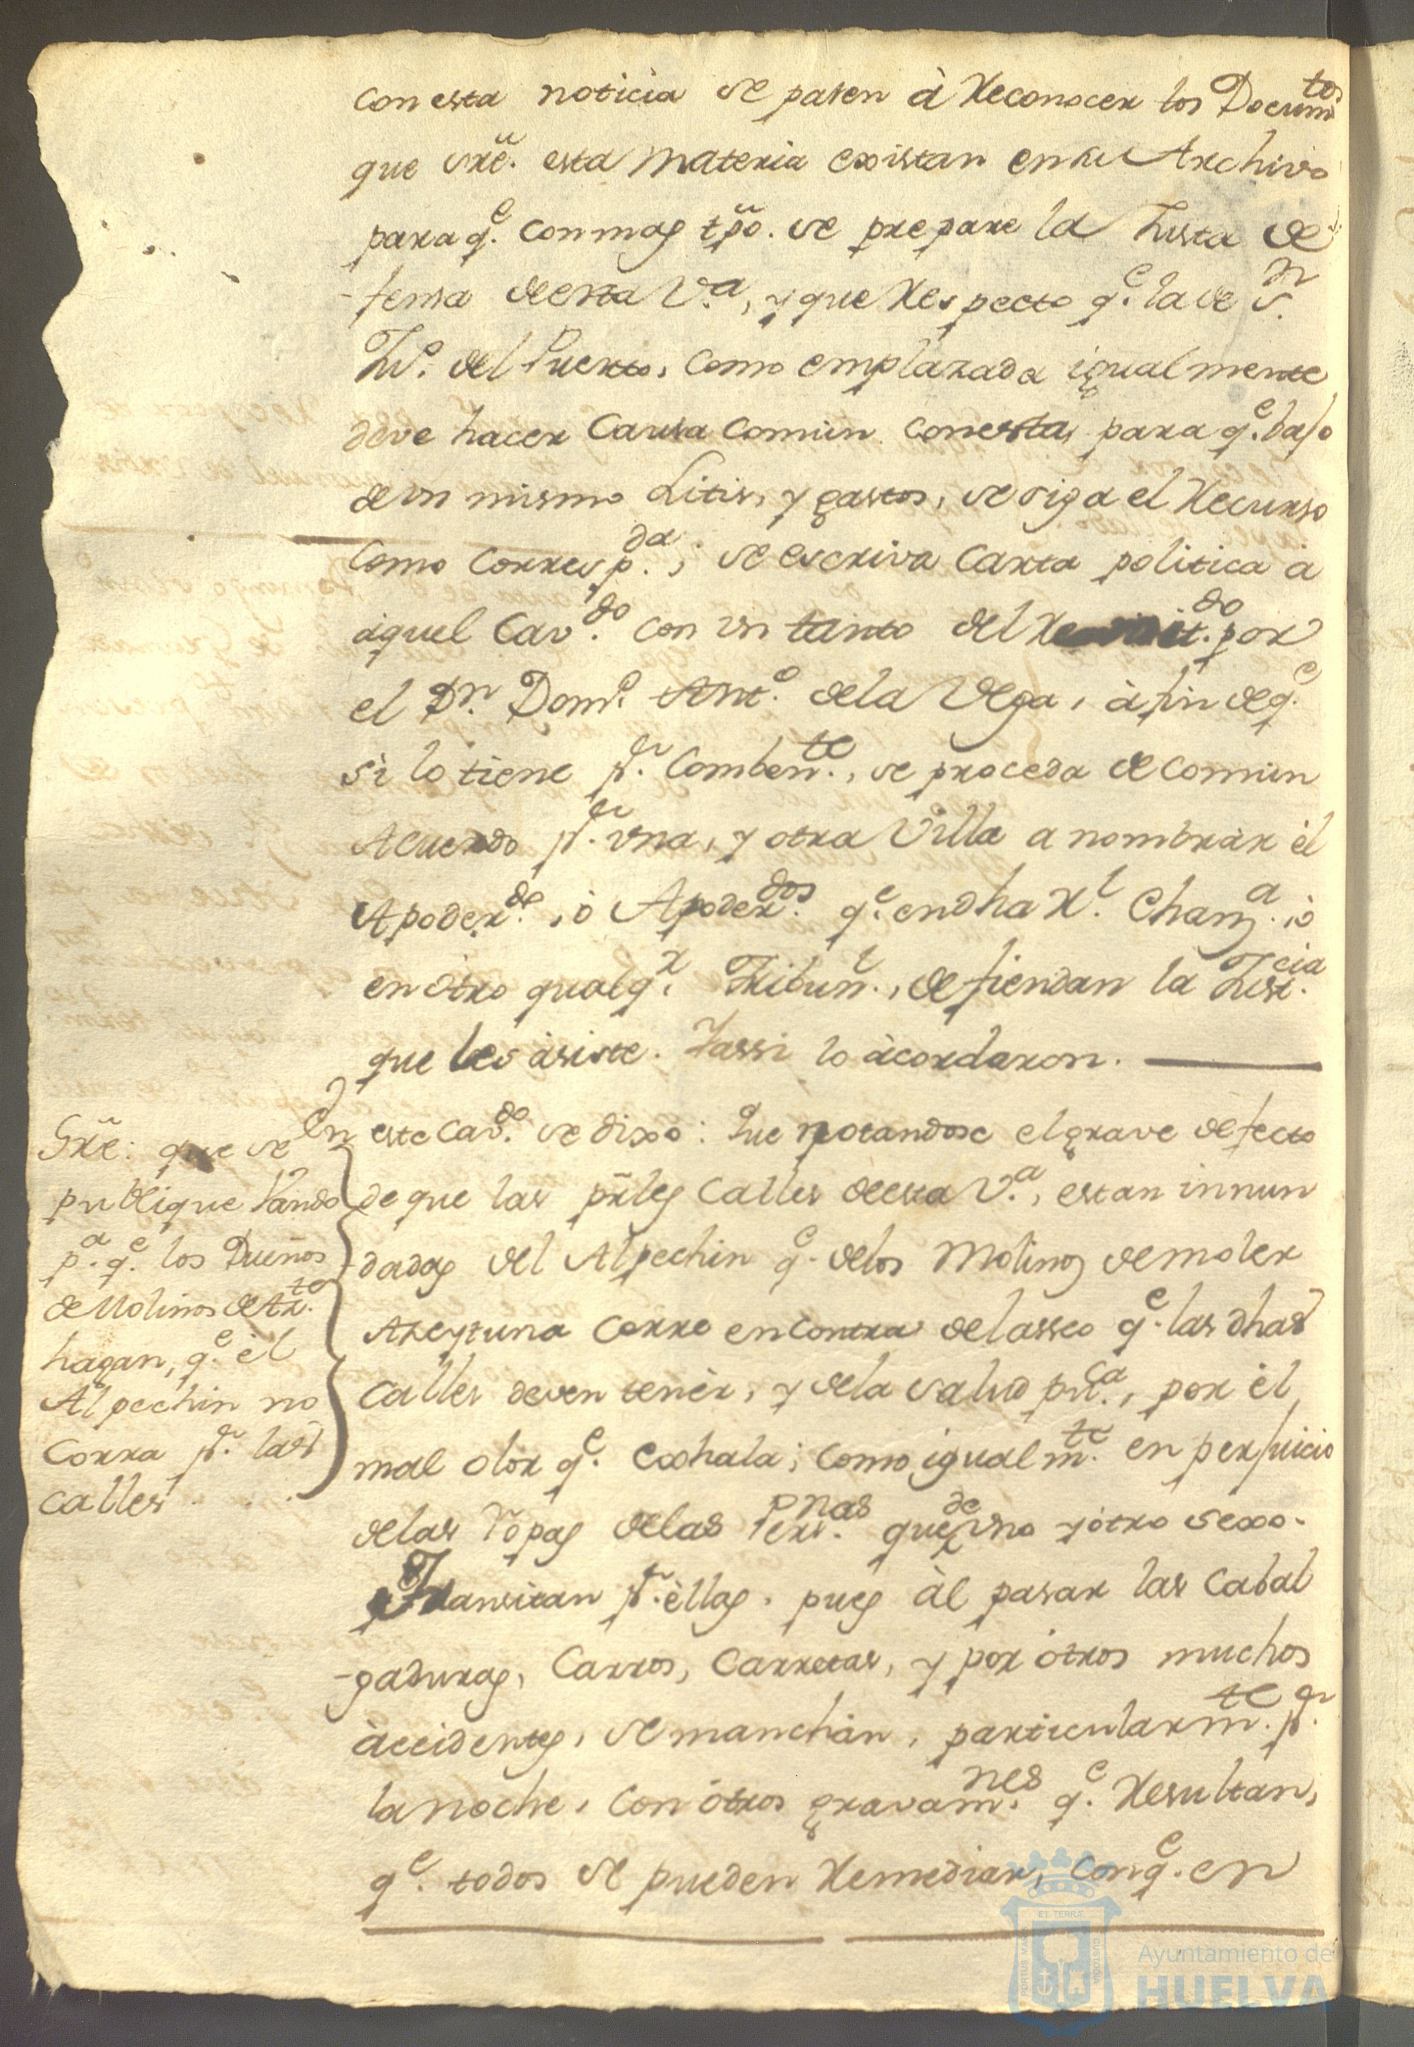 con esta noticia se pasen à Reconocer los Docum.tos
que sre. esta materia existan en su Archivo
para q.e con mas tpo. se prepare la Justa de
fensa de esta V.a, y que Respecto q.e la de S.n
Ju.o del Puerto, como emplazada igualmente
deve hacer Causa Comun con esta, para q.e bajo
de un mismo Litis, y gastos, se siga el Recurso
como Corresp.da, se escriva Carta politica à
aquel Cav.do con un tanto del por
el Dn. Dom.o Ant.o de la Vega, à fin de q.e
si lo tiene p.r Comben.te, se proceda de comun
Acuerdo p.r una, y otra Villa a nombrar èl
Apoder.do, ò Apoder.dos q.e en dha Rl. Chanz.a ò
en òtro qualq.r Tribun.l, defiendan la Just.cia
que les àsiste. Y assi lo àcordaron.
En este Cav.do se dixo: Que notandose el grave defecto
de que las prles Calles de esta V.a, estan innun
dadas del Alpechin q.e de los Molinos de moler
Azeytuna corre en contra del asseo q.e las dhas
Calles deven tenèr, y de la salud pu.ca, por èl
mal olor q.e exhala; como igualm.te en perjuicio
de las ropas de las Pers.nas que de uno y òtro sexo
Transitan p.r èllas. pues àl pasar las Cabal
gaduras, Carros, Carretas, y por òtros muchos
àccidentes, se manchan, particularm.te p.r
la noche, con òtros gravam.nes q.e Resultan,
q.e todos se pueden Remediar, con q.e en
Sre: que se
publique Vando
p.a q.e los Dueños
de Molinos de Az.te
hagan, q.e èl
Alpechin no
Corra p.r las
calles
PORTUS MARIS ET TERRAE CUSTODIA
Ayuntamiento de
HUELVA